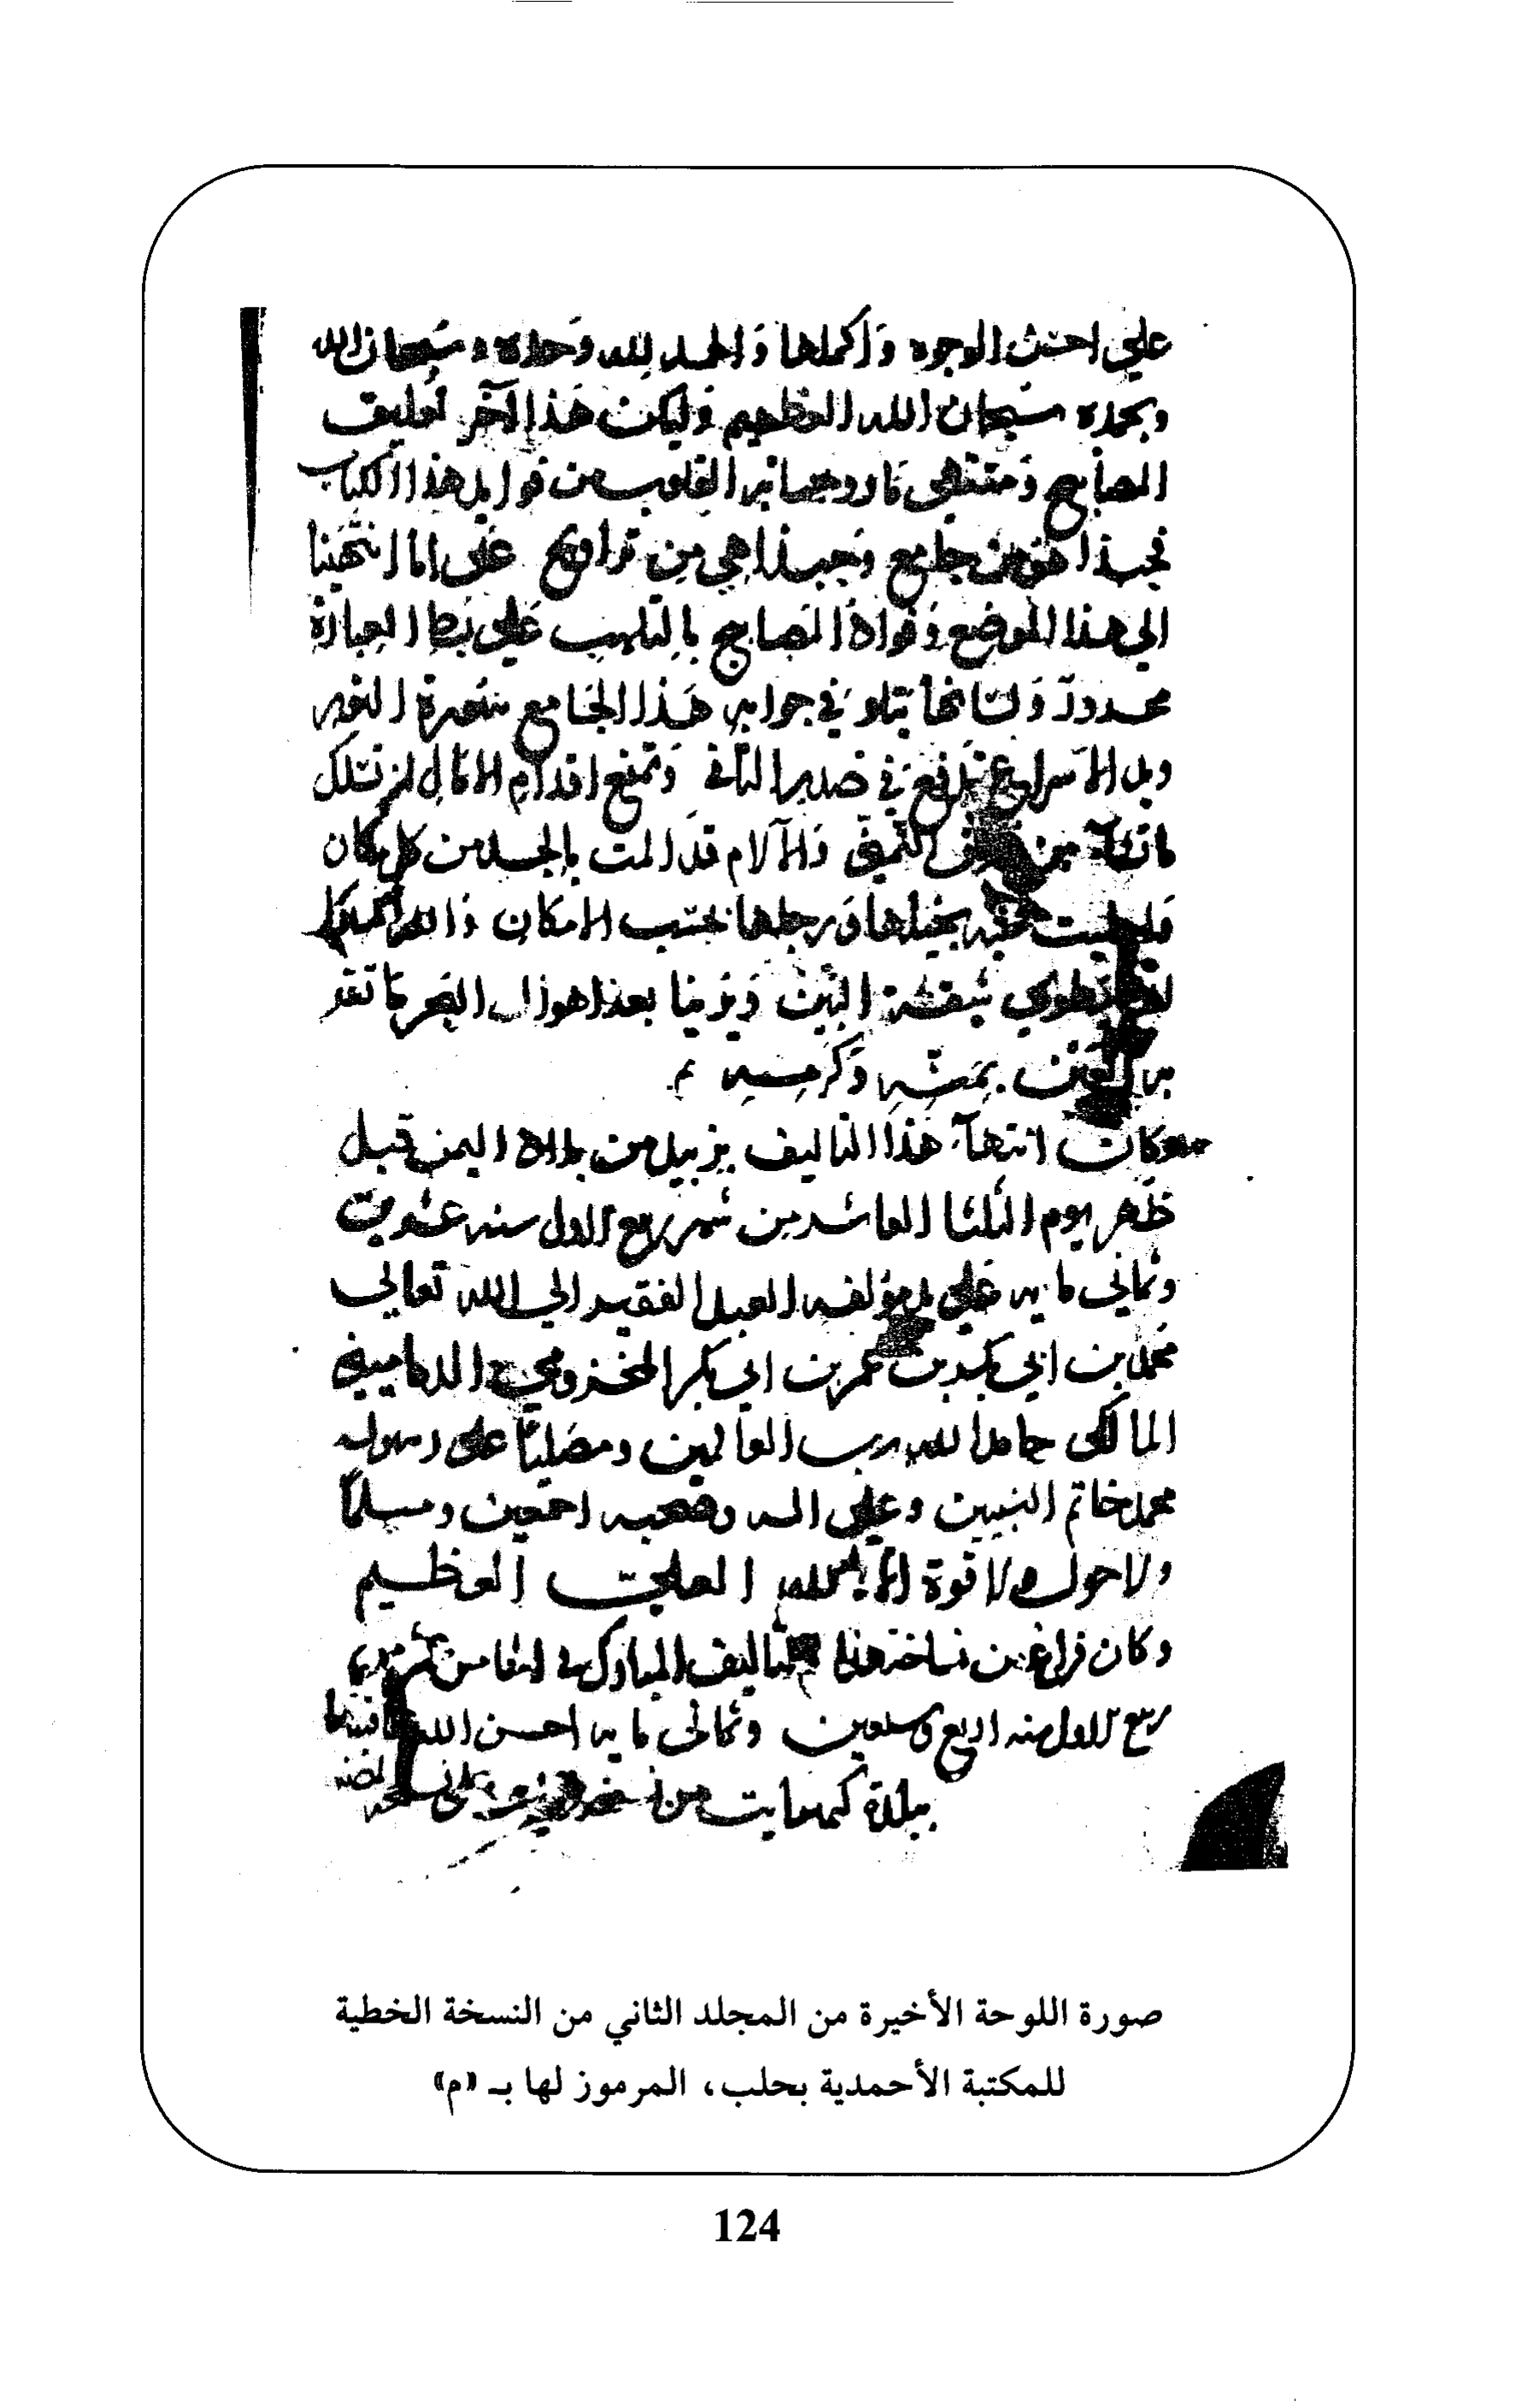 علي احسن الوجوه واكملها والحمد لله وحده وسبحان الله
وبحمده سبحان الله العظيم وليكن هذا آخر تعليق
المصابيح ومنتهى ما القلوب من فوايد هذا الكتاب
فحبذا هو من جامع وحبذا هي من تراويح على انا انتهينا
الى هذا الموضع وفواد المصابيح بالتلهب على العبارة
محدود ولسانها يتلو في جوانب هذا الجامع سورة النور
الاسراع في صدر وتمنع اقدام الامال ان تسلك
ما تشآء من التمني والآلام قد المت بالجسد من كل مكان
بخيلها ورجلها بحسب الامكان والله
بعد اهوال البحر ما تقر
به العين بمنه وكرمه
وكان انتهآء هذا التاليف بزبيد من بلاد اليمن قبيل
ظهر يوم الثلثا العاشر من شهر ربيع الاول سنه عشرين
وثماني مايه على يد مؤلفه العبد الفقير الى الله تعالى
محمد بن ابي بكر بن عمر بن ابي بكر المخزومي الدماميني
المالكي حامدا لله رب العالمين ومصليا على رسوله
محمد خاتم النبيين وعلى اله وصحبه اجمعين ومسلما
ولا حول ولا قوة الا بالله العلي العظيم
وكان فراغ من نساخة هذا التاليف المبارك في الثامن
ربيع الاول سنه اربع وثماني مايه احسن الله
ببلدة كنبايت من
صورة اللوحة الأخيرة من المجلد الثاني من النسخة الخطية
للمكتبة الأحمدية بحلب، المرموز لها بـ «م»
124